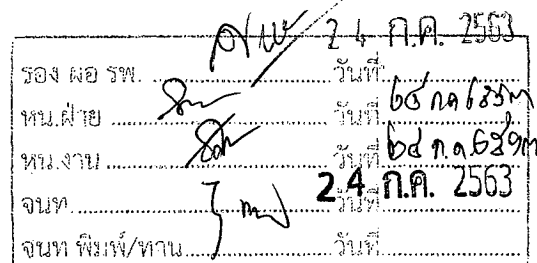 24 ก.ค. 2563
รอง ผอ รพ. ........................ วันที่
หน.ฝ่าย ........................ วันที่ ๒๔ ก.ค.๒๕๖๓
หน.งาน ........................ วันที่ ๒๔ ก.ค.๒๕๖๓
24 ก.ค. 2563
จนท. ........................ วันที่
จนท พิมพ์/ทาน ........................ วันที่ ........................